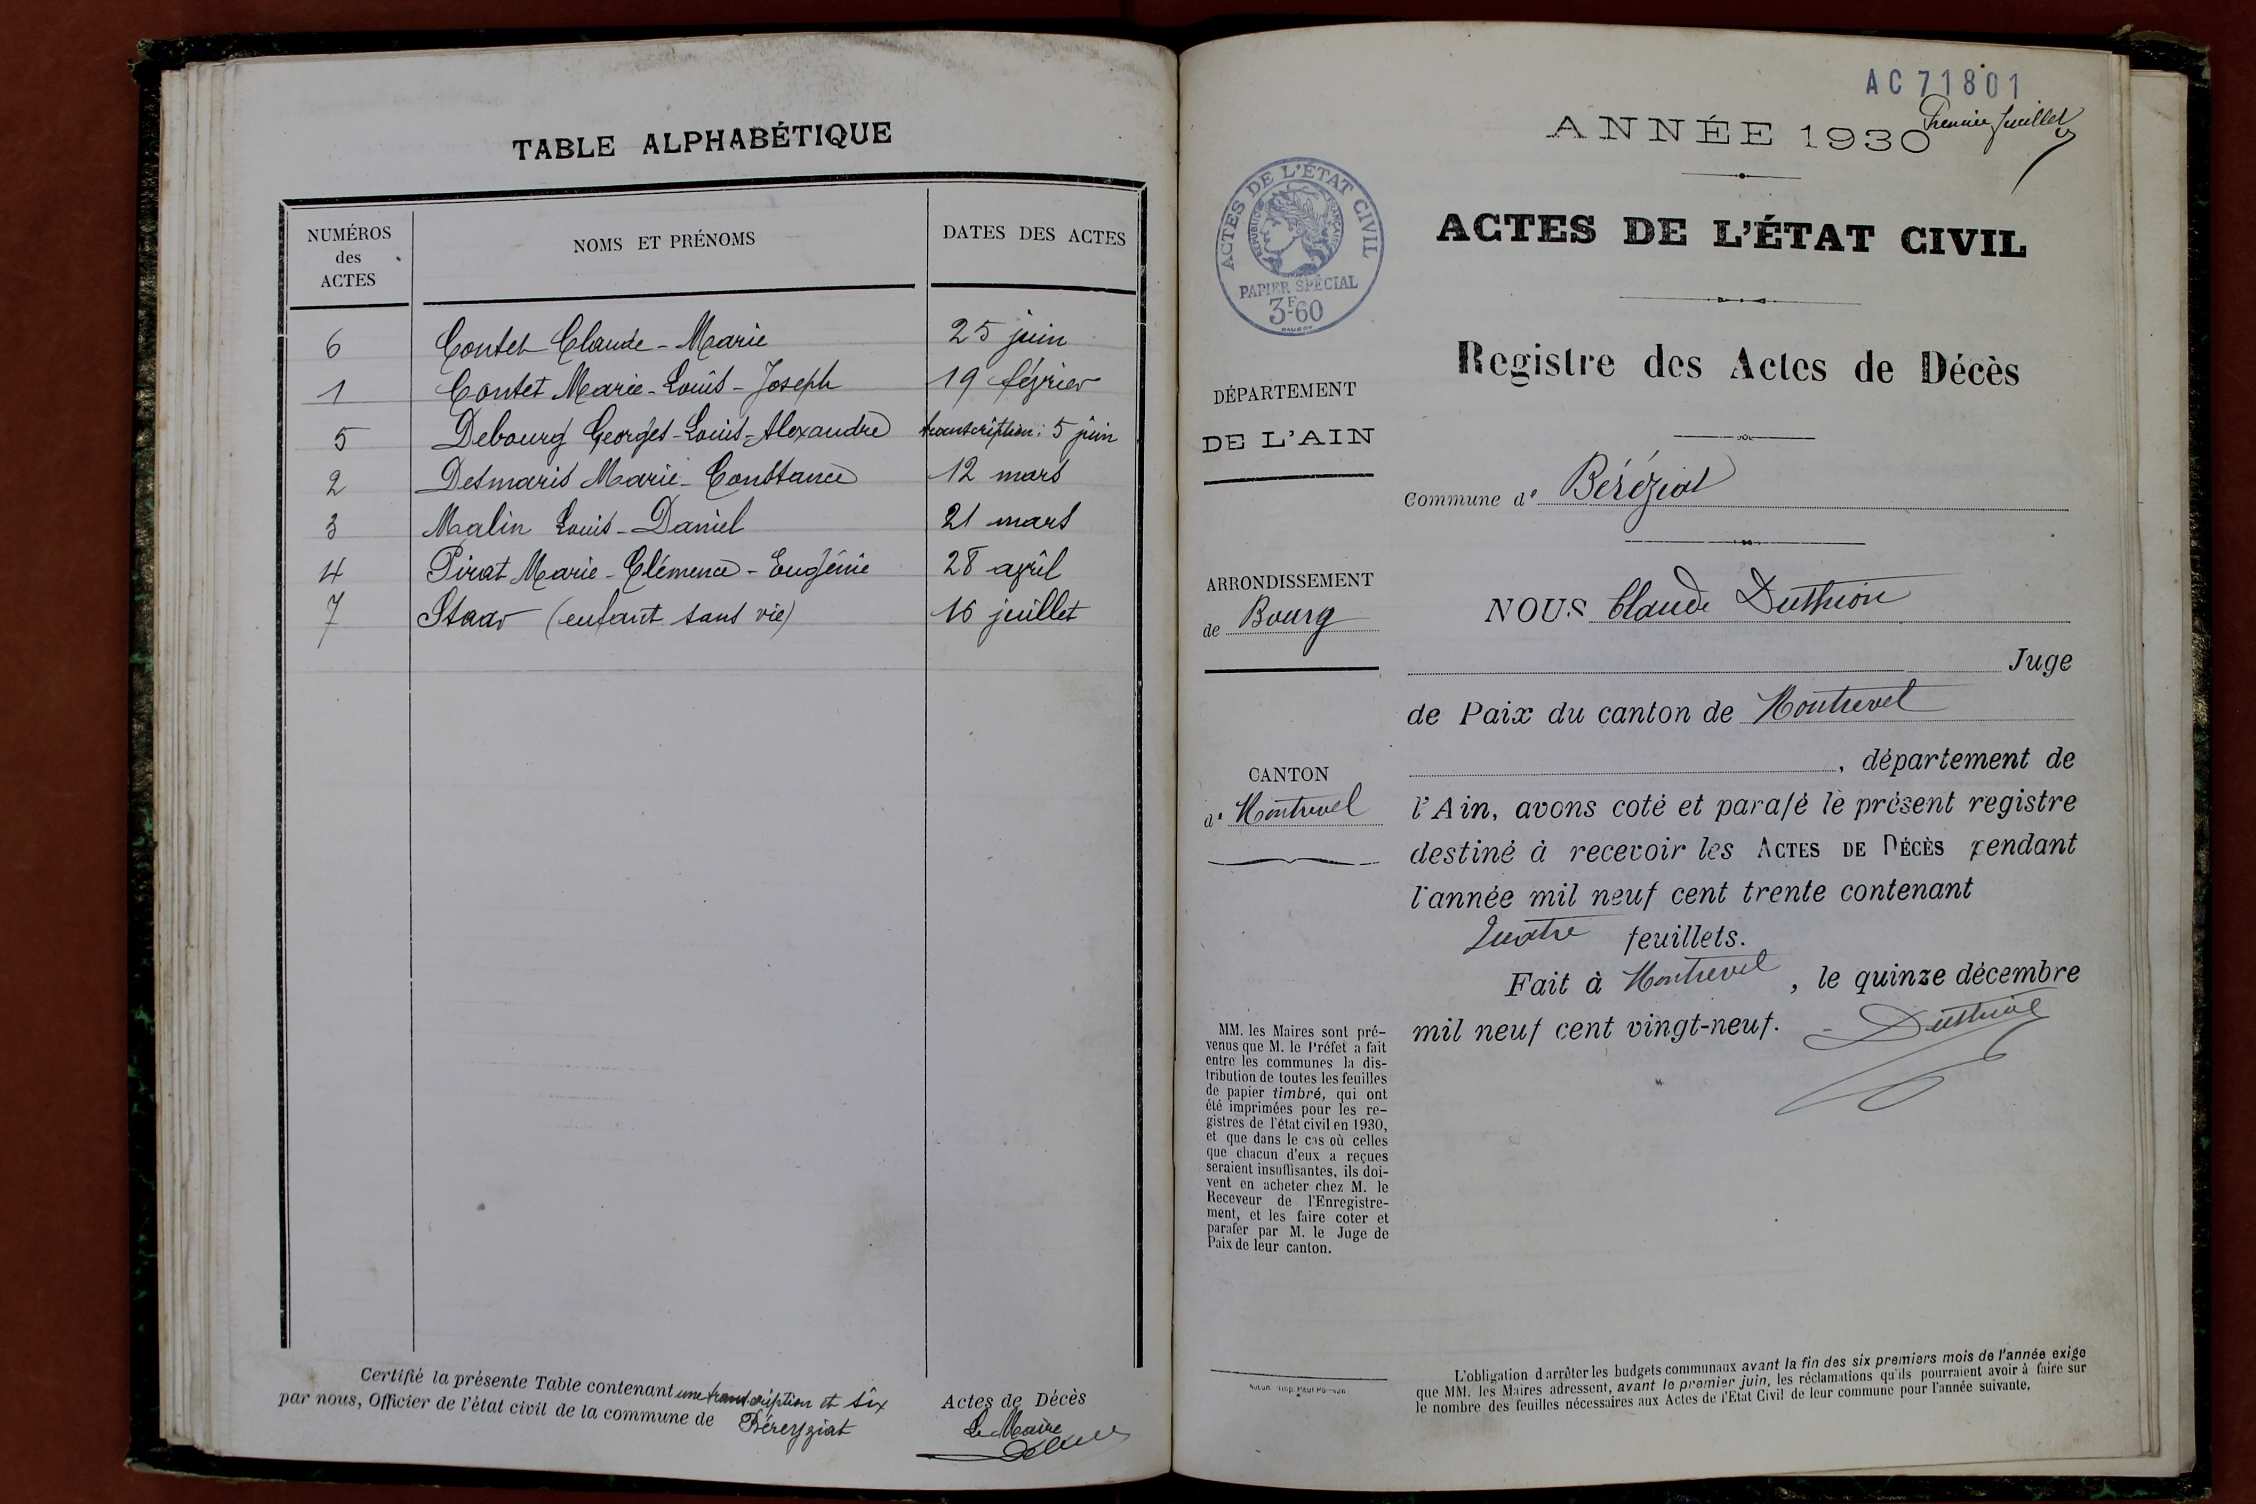 TABLE ALPHABÉTIQUE
NUMÉROS des ACTES
NOMS ET PRÉNOMS
DATES DES ACTES
6 Contet Claude - Marie 25 juin
1 Contet Marie - Louis - Joseph 19 février
5 Debourg Georges - Louis - Alexandre transcription : 5 juin
2 Desmaris Marie - Constance 12 mars
3 Malin Louis - Daniel 21 mars
4 Pirat Marie - Clémence - Eugénie 28 avril
7 Staav (enfant sans vie) 16 juillet
Certifié la présente Table contenant une transcription et six Actes de Décès
par nous, Officier de l'état civil de la commune de Béreyziat
Le Maire
AC 71801
Premier feuillet
ANNÉE 1930
ACTES DE L'ÉTAT CIVIL
RÉPUBLIQUE FRANÇAISE
PAPIER SPÉCIAL
3F60
ACTES DE L'ÉTAT CIVIL
Registre des Actes de Décès
DÉPARTEMENT
DE L'AIN
ARRONDISSEMENT
de Bourg
CANTON
de Montrevel
MM. les Maires sont pré-
venus que M. le Préfet a fait
entre les communes la dis-
tribution de toutes les feuilles
de papier timbré, qui ont
été imprimées pour les re-
gistres de l'état civil en 1930,
et que dans le cas où celles
que chacun d'eux a reçues
seraient insuffisantes, ils doi-
vent en acheter chez M. le
Receveur de l'Enregistre-
ment, et les faire coter et
parafer par M. le Juge de
Paix de leur canton.
Commune de Béréziat
NOUS Claude Duthion
Juge
de Paix du canton de Montrevel
, département de
l'Ain, avons coté et parafé le présent registre
destiné à recevoir les ACTES DE DÉCÈS pendant
l'année mil neuf cent trente contenant
quatre feuillets.
Fait à Montrevel, le quinze décembre
mil neuf cent vingt-neuf.
Duthion
L'obligation d'arrêter les budgets communaux avant la fin des six premiers mois de l'année exige
que MM. les Maires adressent, avant le premier juin, les réclamations qu'ils pourraient avoir à faire sur
le nombre des feuilles nécessaires aux Actes de l'Etat Civil de leur commune pour l'année suivante.